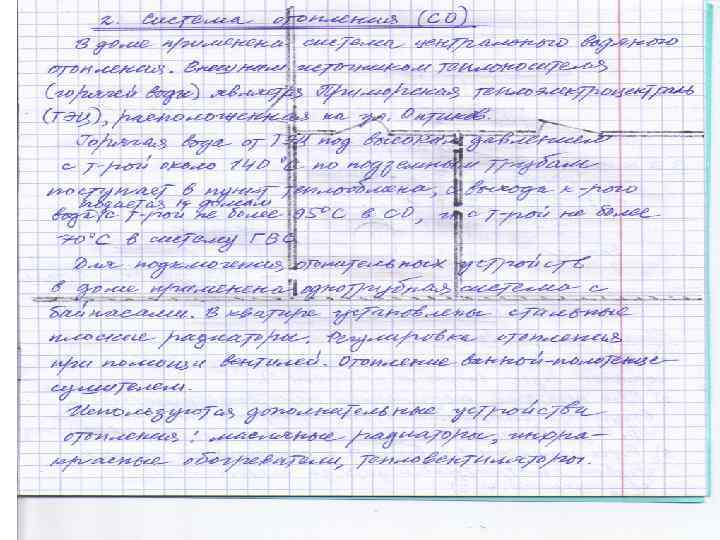 2. Система отопления (СО).
В доме применена система центрального водяного
отопления. Внешним источником теплоносителя
(горячей воды) является Приморская теплоэлектроцентраль
(ТЭЦ), расположенная на ул. Оптиков.
Горячая вода от ТЭЦ под высоким давлением
с т-рой около 140 °С по подземным трубам
поступает в пункт теплообмена, с выхода к-рого
подается к домам
вода с т-рой не более 95°С в СО, и с т-рой не более
70°С в систему ГВС
Для подключения отопительных устройств
в доме применена однотрубная система с
байпасами. В квартире установлены стальные
плоские радиаторы. Регулировка отопления
при помощи вентилей. Отопление ванной-полотенце-
сушителем.
Используются дополнительные устройства
отопления: масляные радиаторы, инфра-
красные обогреватели, тепловентиляторы.